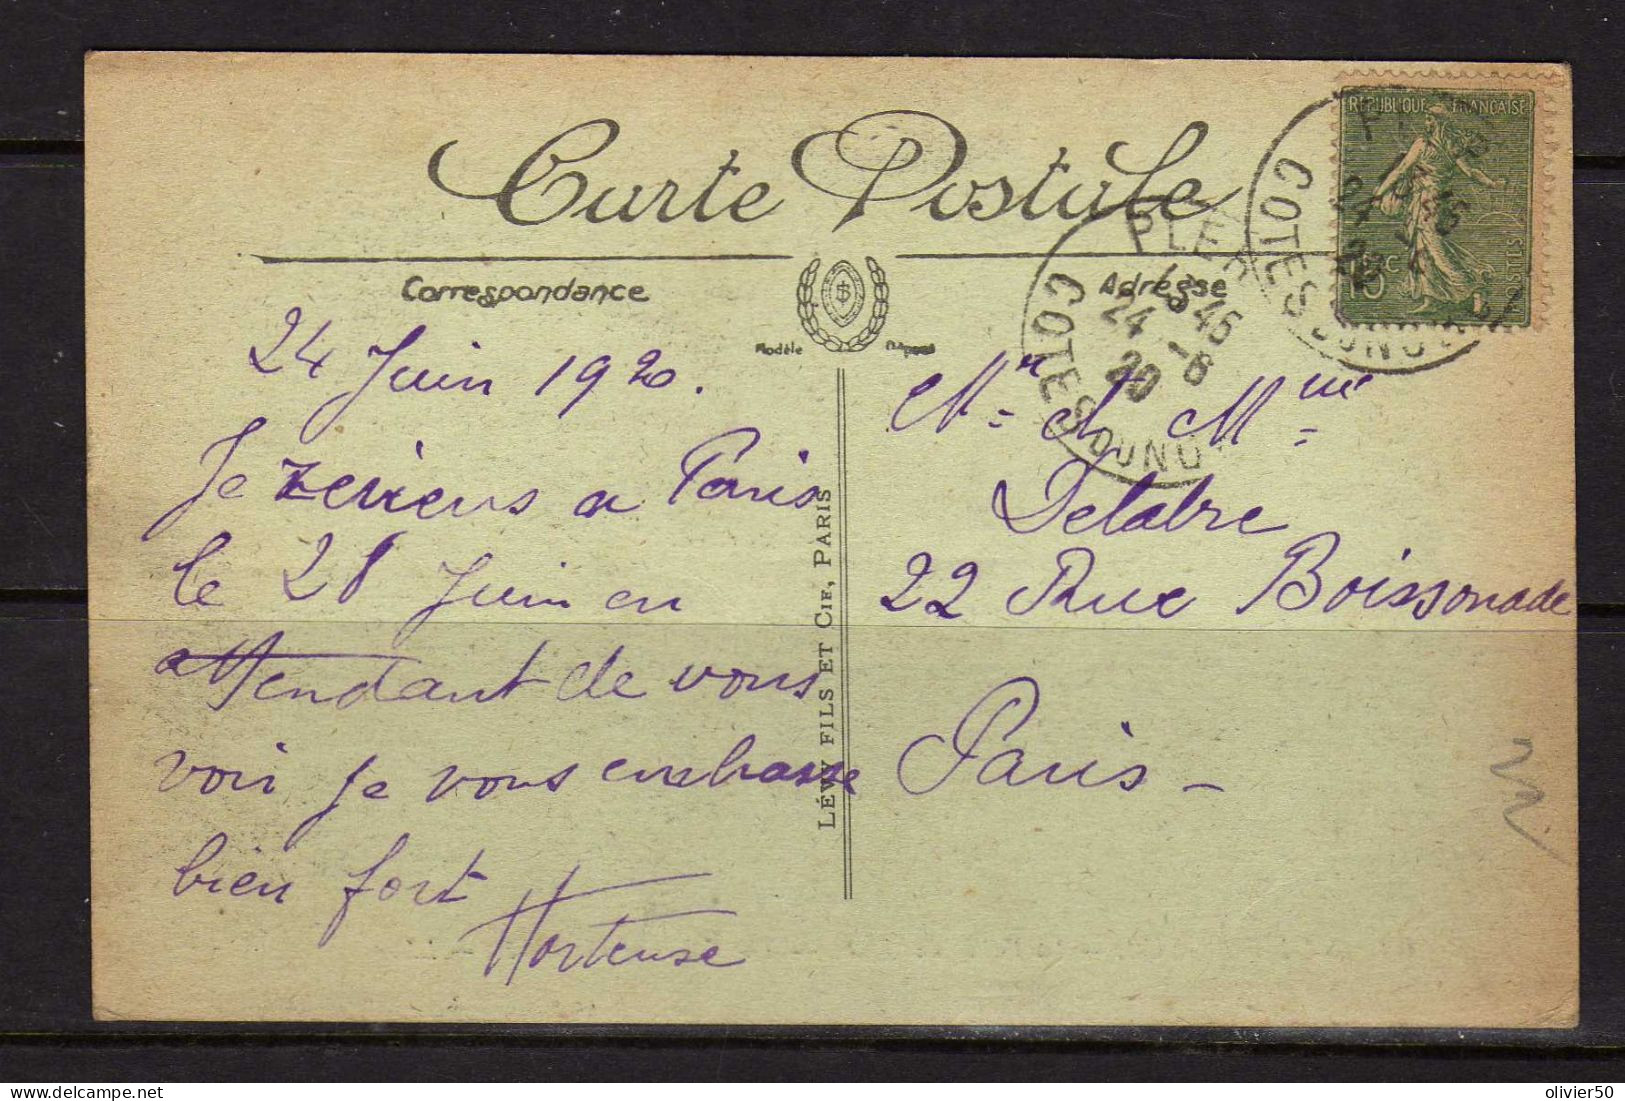 Carte Postale
Correspondance
Adresse
Modèle
Déposé
RÉPUBLIQUE FRANÇAISE
15c
POSTES
PLER
15 45
24 -6
20
COTES DU NORD
COTES DU NORD
24 Juin 1920.
Je reviens a Paris
le 28 Juin en
attendant de vous
voir je vous embrasse
bien fort
Hortense
LÉVY FILS ET CIE, PARIS
Mr & Mme
Delabre
22 Rue Boissonade
Paris -
olivier50